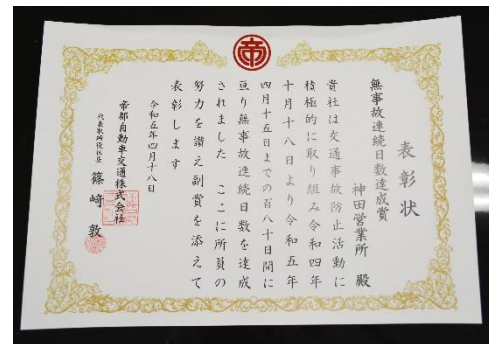 帝
表彰状
無事故連続日数達成賞
神田営業所 殿
貴社は交通事故防止活動に
積極的に取り組み令和四年
十月十八日より令和五年
四月十五日までの百八十日間に
亘り無事故連続日数を達成
されました ここに所員の
努力を讃え副賞を添えて
表彰します
令和五年四月十八日
帝都自動車交通株式会社
代表取締役社長 篠﨑 敦